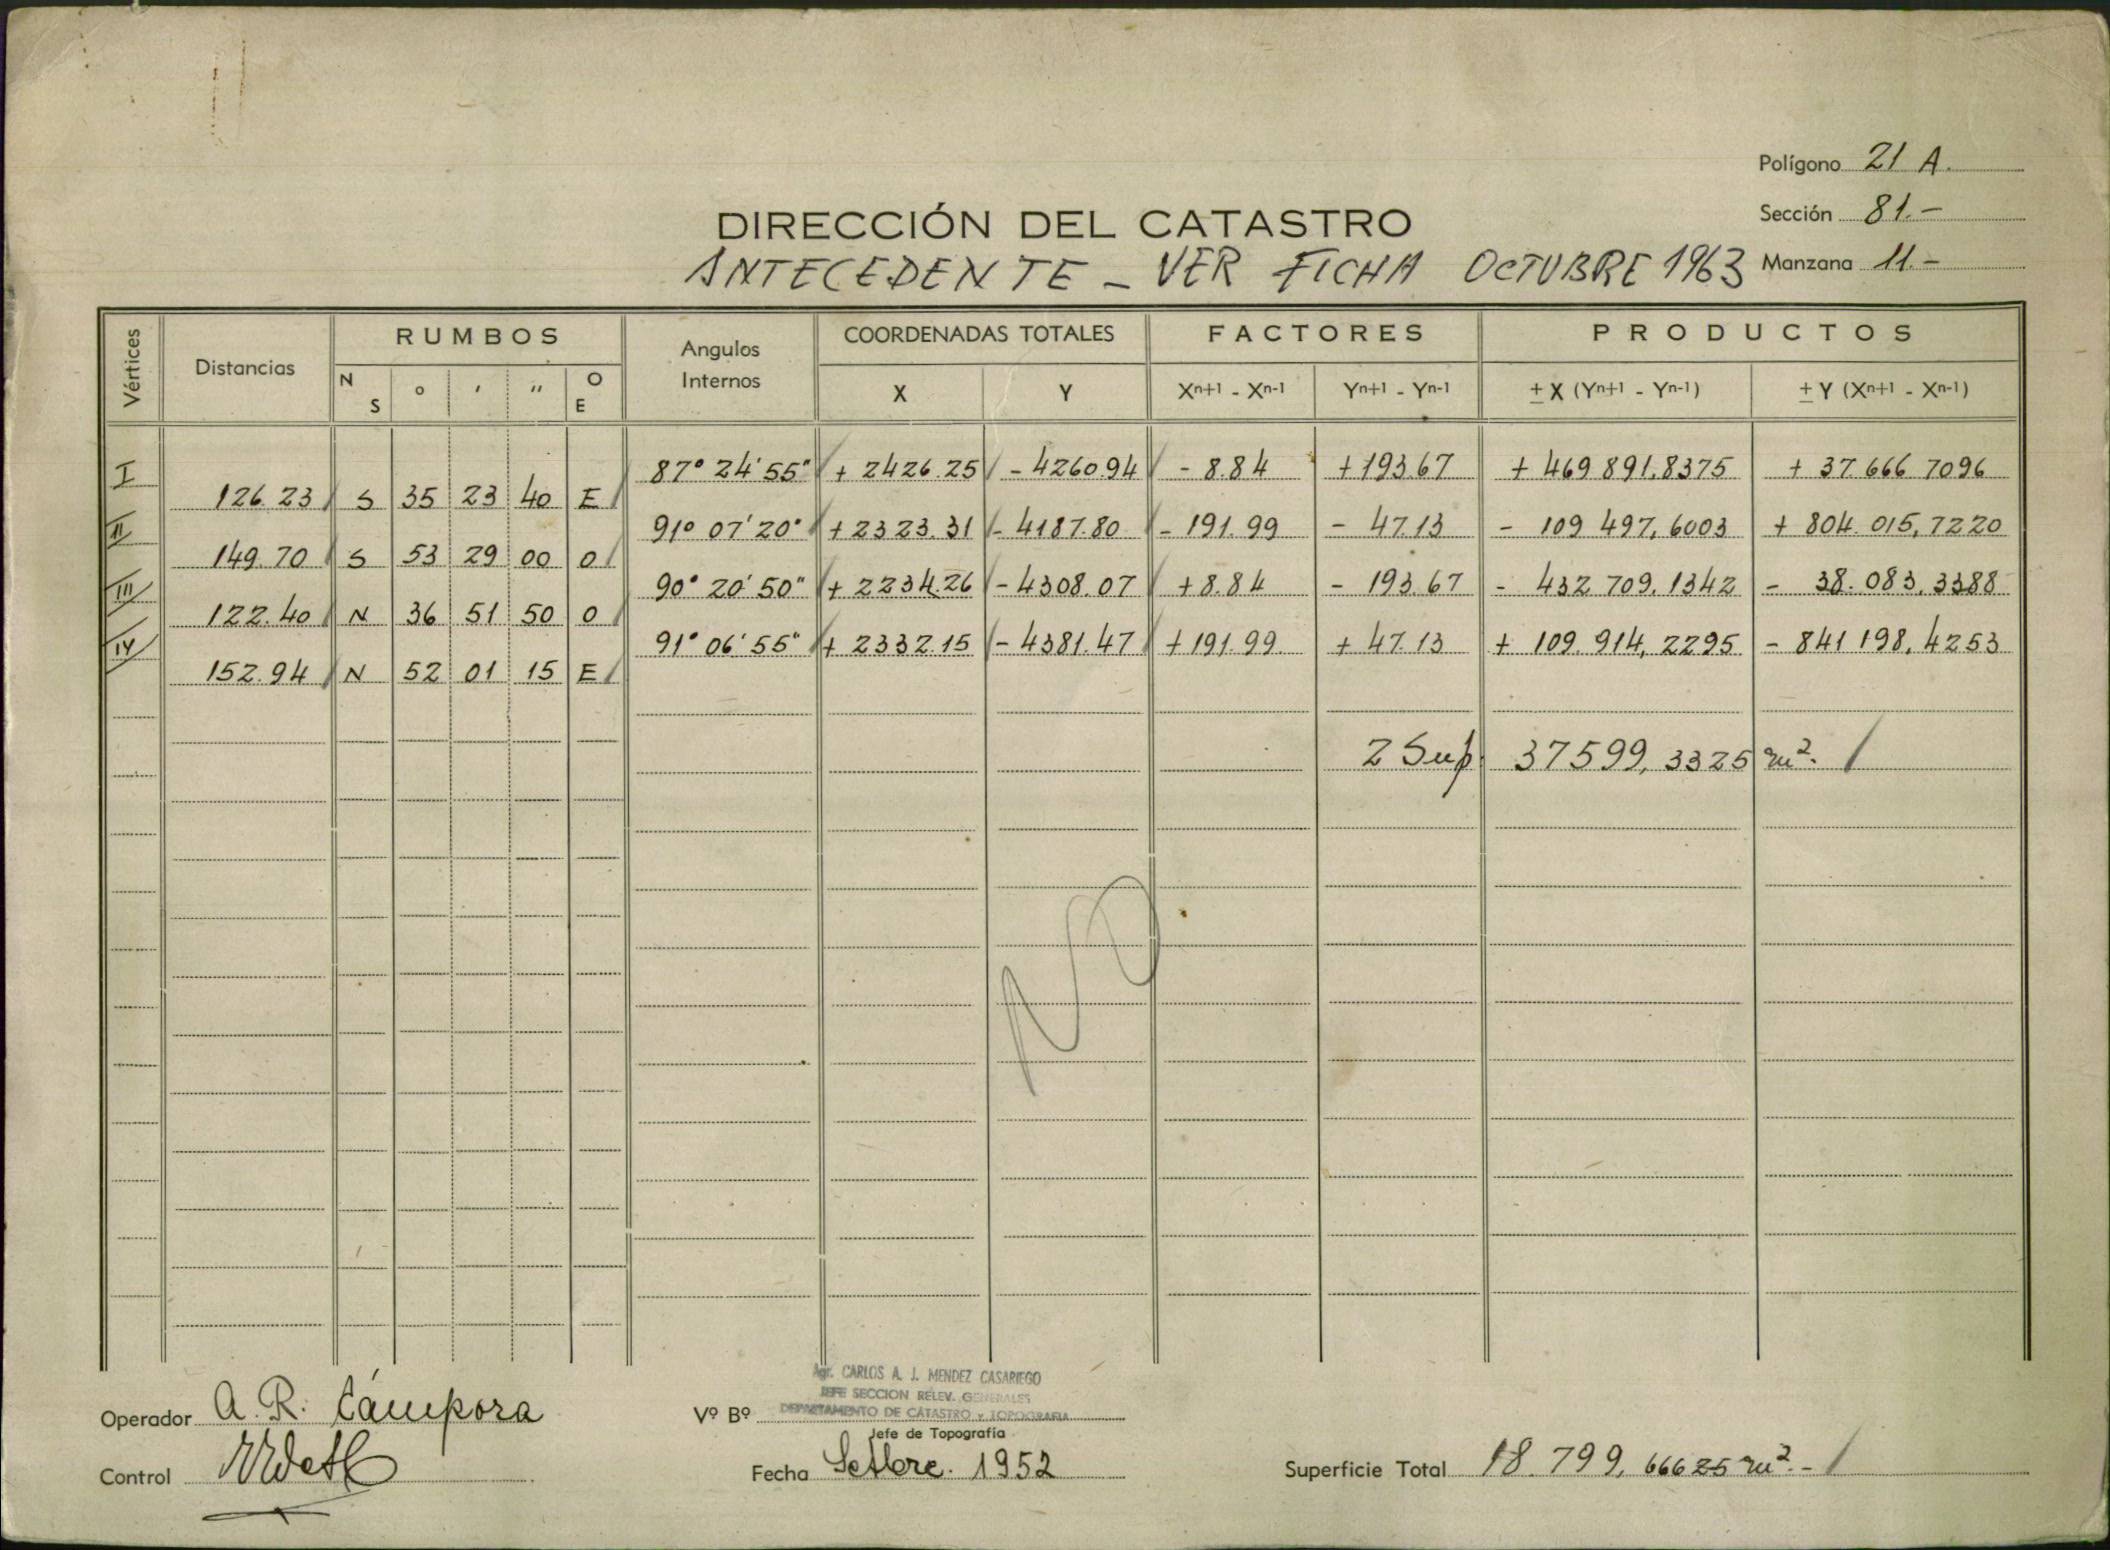 Polígono 21 A.
Sección 81.-
DIRECCIÓN DEL CATASTRO
ANTECEDENTE - VER FICHA OCTUBRE 1963
Manzana 11.-
Vértices Distancias RUMBOS Angulos Internos COORDENADAS TOTALES FACTORES PRODUCTOS
N S ° ' '' O E X Y Xn+1 - Xn-1 Yn+1 - Yn-1 ± X (Yn+1 - Yn-1) ± Y (Xn+1 - Xn-1)
I 87° 24' 55" + 2426.25 - 4260.94 - 8.84 + 193.67 + 469 891,8375 + 37.666 7096
126.23 S 35 23 40 E
II 91° 07' 20" + 2323.31 - 4187.80 - 191.99 - 47.13 - 109 497,6003 + 804.015,7220
149.70 S 53 29 00 O
III 90° 20' 50" + 2234.26 - 4308.07 + 8.84 - 193.67 - 432 709,1342 - 38.083,3388
122.40 N 36 51 50 O
IV 91° 06' 55" + 2332.15 - 4381.47 + 191.99 + 47.13 + 109.914,2295 - 841 198,4253
152.94 N 52 01 15 E
2 Sup. 37599,3325 m².
NO
Agr. CARLOS A. J. MENDEZ CASARIEGO
JEFE SECCION RELEV. GENERALES
DEPARTAMENTO DE CATASTRO y TOPOGRAFIA
Operador A. R. Cámpora Vº Bº
Jefe de Topografía
Control Fecha Setbre. 1952 Superficie Total 18.799,66625 m².-